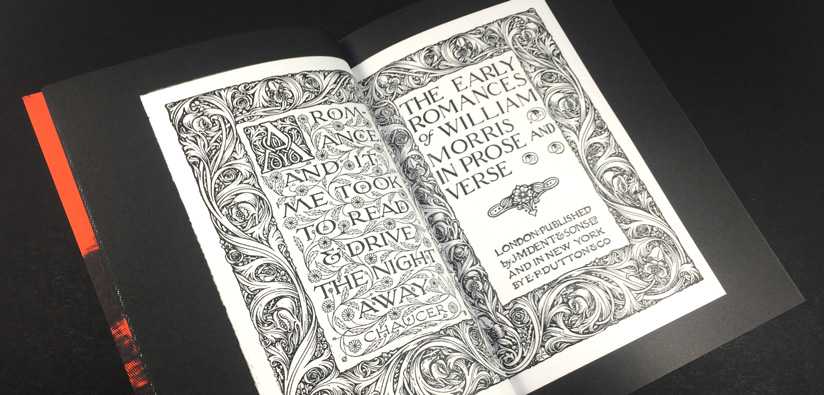 A ROM
ANCE
AND IT
ME TOOK
TO READ
& DRIVE
THE NIGHT
AWAY
CHAUCER
THE EARLY
ROMANCES
of WILLIAM
MORRIS
IN PROSE AND
VERSE
LONDON·PUBLISHED
by J·M·DENT·&·SONS·LTD
AND IN NEW YORK
BY E·P·DUTTON & CO